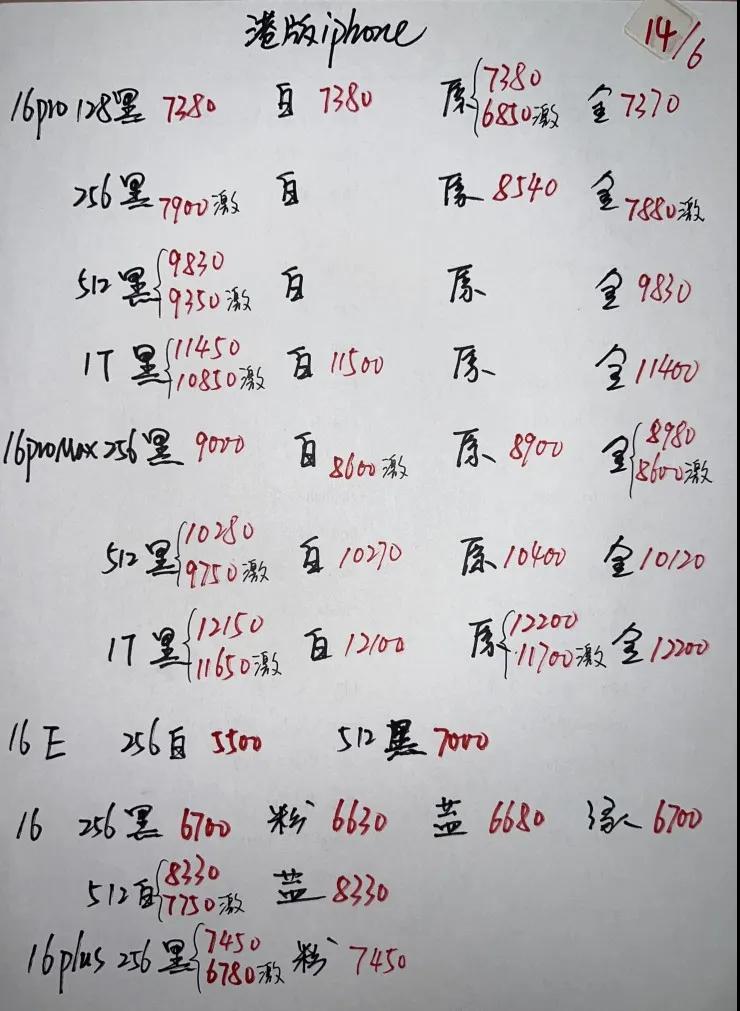 港版iphone 14/6
16pro 128黑 7380 白 7380 原 7380 6850激 金 7370
256黑 7900激 白 原 8540 金 7880激
512黑 9830 9350激 白 原 金 9830
1T 黑 11450 10850激 白 11500 原 金 11400
16proMax 256黑 9000 白 8600激 原 8900 金 8980 8600激
512黑 10280 9750激 白 10270 原 10400 金 10120
1T 黑 12150 11650激 白 12100 原 12200 11700激 金 12200
16E 256白 5500 512黑 7000
16 256黑 6700 粉 6630 蓝 6680 绿 6700
512白 8330 7750激 蓝 8330
16plus 256黑 7450 6780激 粉 7450